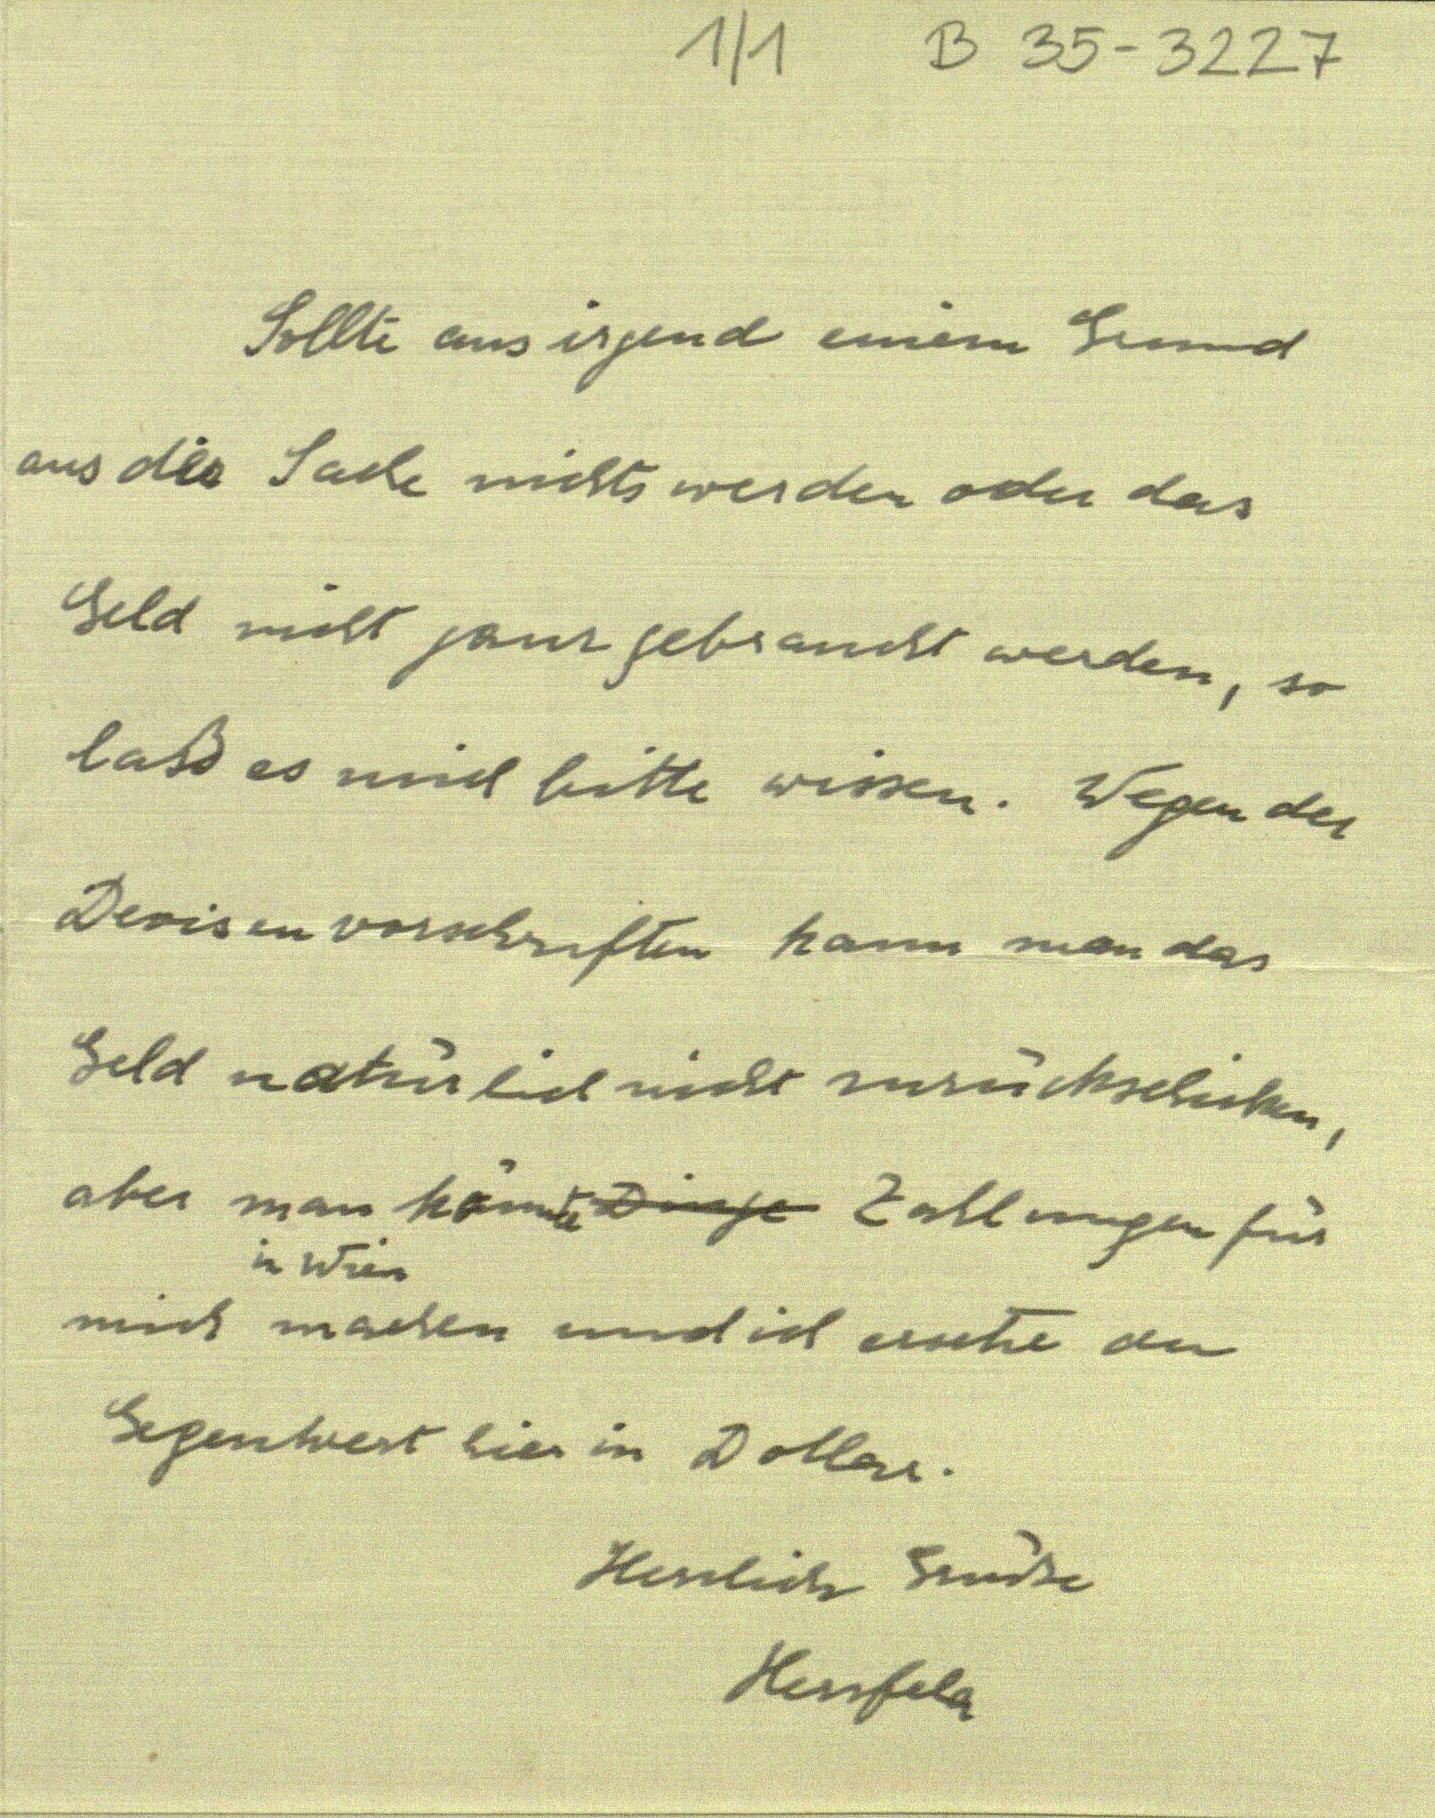 1/1 B 35-3227
Sollte aus irgend einem Grund
aus der Sache nichts werden oder das
Geld nicht ganz gebraucht werden, so
laß es mich bitte wissen. Wegen der
Devisenvorschriften kann man das
Geld natürlich nicht zurückschicken,
aber man könnte Dinge Zahlungen für
in Wien
mich machen und ich ersetze den
Gegenwert hier in Dollar.
Herzliche Grüße
Herzfeld